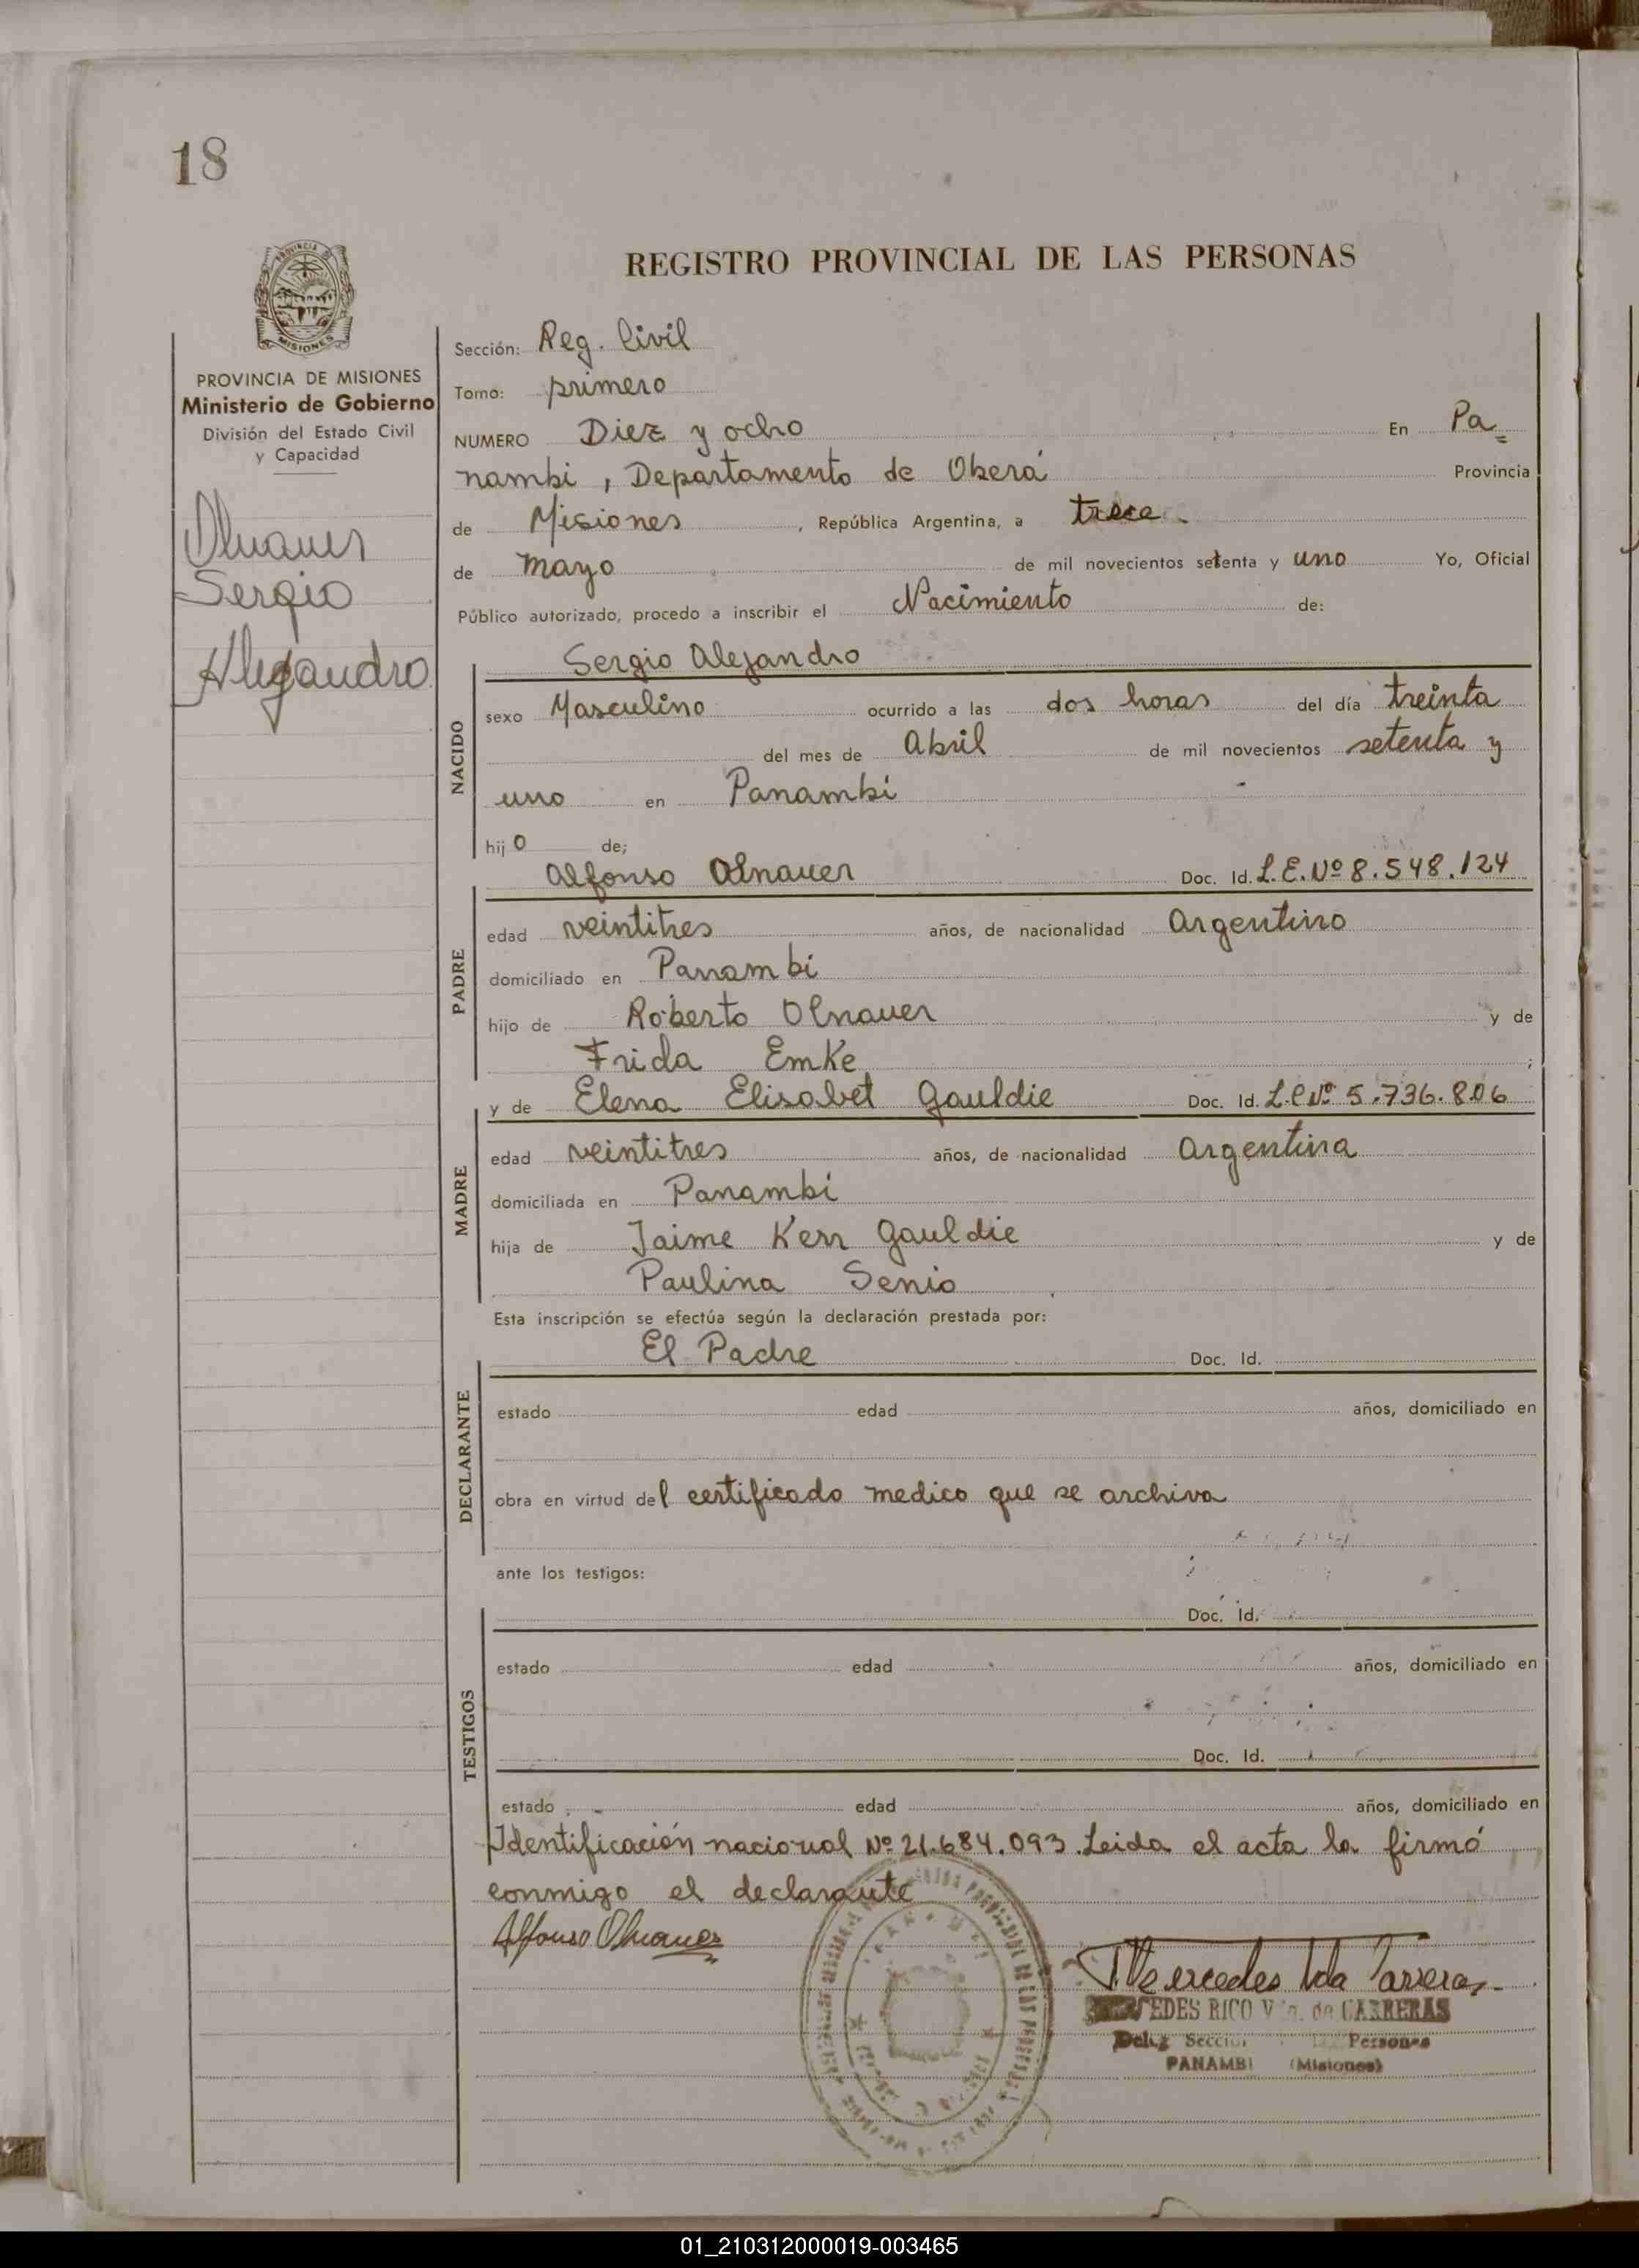 18
PROVINCIA
MISIONES
REGISTRO PROVINCIAL DE LAS PERSONAS
PROVINCIA DE MISIONES
Ministerio de Gobierno
División del Estado Civil
y Capacidad
Olnauer
Sergio
Alejandro
Sección: Reg. Civil
Tomo: primero
NUMERO Diez y ocho En Pa=
nambi, Departamento de Oberá Provincia
de Misiones, República Argentina, a trece
de mayo de mil novecientos setenta y uno Yo, Oficial
Público autorizado, procedo a inscribir el Nacimiento de:
NACIDO
Sergio Alejandro
sexo Masculino ocurrido a las dos horas del día treinta
del mes de Abril de mil novecientos setenta y
uno en Panambi
hijo de;
PADRE
Alfonso Olnauer Doc. Id. L.E. Nº 8.548.124
edad veintitres años, de nacionalidad Argentino
domiciliado en Panambi
hijo de Roberto Olnauer y de
Frida Emke;
MADRE
y de Elena Elisabet Gauldie Doc. Id. L.C Nº 5.736.806
edad veintitres años, de nacionalidad Argentina
domiciliada en Panambi
hija de Jaime Kerr Gauldie y de
Paulina Senio
Esta inscripción se efectúa según la declaración prestada por:
DECLARANTE
El Padre Doc. Id.
estado edad años, domiciliado en
obra en virtud del certificado medico que se archiva
ante los testigos:
TESTIGOS
Doc. Id.
estado edad años, domiciliado en
Doc. Id.
estado edad años, domiciliado en
Identificación nacional Nº 21.684.093. Leida el acta la firmó
conmigo el declarante
Alfonso Olnauer
Mercedes Vda Carreras
RICO de CARRERAS
Deleg Personas
PANAMBI (Misiones)
01_210312000019-003465